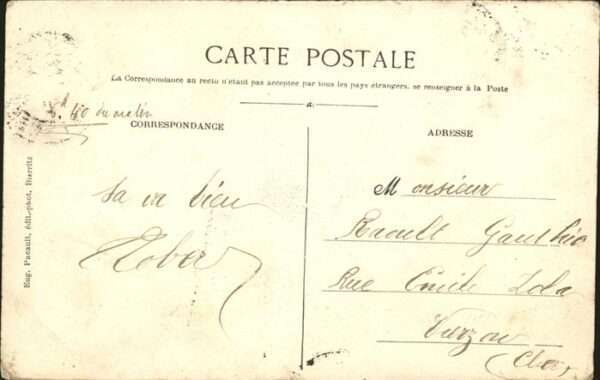 CARTE POSTALE
La Correspondance au recto n'étant pas acceptée par tous les pays étrangers, se renseigner à la Poste
a.
du matin
CORRESPONDANCE
ADRESSE
Eug. Pacault, édit.-phot. Biarritz
Sa va bien
Rober
Monsieur
Raoult Gauthier
Rue Emile Zola
Vierzon
(Cher)